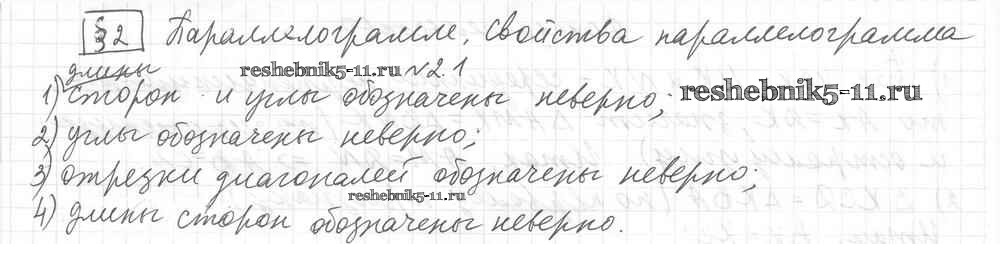 §2 Параллелограмм, свойства параллелограмма
reshebnik5-11.ru №2.1
1) длины сторон и углы обозначены неверно; reshebnik5-11.ru
2) углы обозначены неверно;
3) отрезки диагоналей обозначены неверно;
reshebnik5-11.ru
4) длины сторон обозначены неверно.